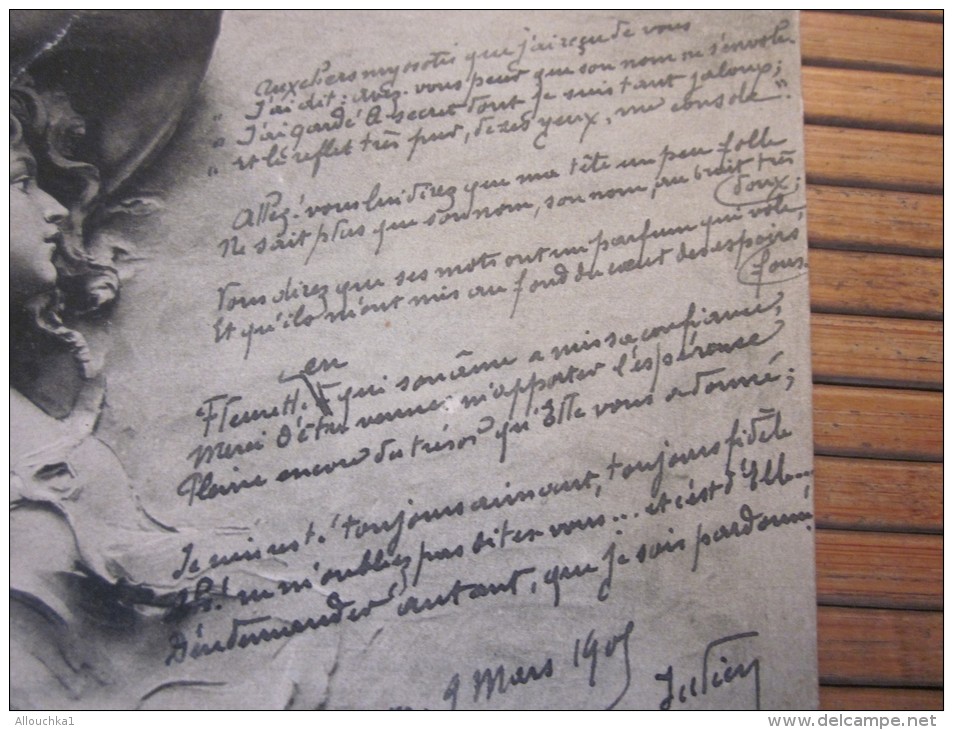 Aux chers myosotis que j'ai reçu de vous
" J'ai dit: avez-vous peur que son nom ne s'envole
" J'ai gardé le secret dont je suis tant jaloux;
" et le reflet très pur, de ses yeux, me console".
Allez! vous lui direz que ma tête un peu folle
Ne sait plus que son nom, son nom, au trait très
doux;
Vous direz que ses mots ont un parfum qui vole,
Et qu'ils m'ont mis au fond du cœur des espoirs
fous.
Fleurette en qui son âme a mis sa confiance,
Merci d'être venue m'apporter l'espérance
Pleine encore du trésor qu'Elle vous a donné;
Je suis resté toujours aimant, toujours fidèle
Ah! ne m'oubliez pas dites vous... et c'est d'Elle...
D'en demander autant, que je sois pardonné!
9 Mars 1905
Julien
Allouchka1
www.delcampe.net